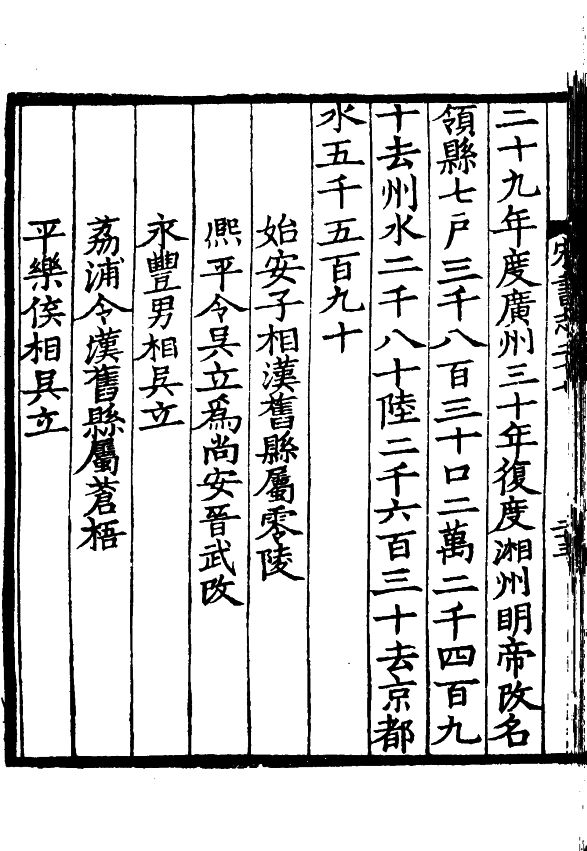 二十九年度廣州三十年復度湘州明帝改名
領縣七戶三千八百三十口二萬二千四百九
十去州水二千八十陸二千六百三十去京都
水五千五百九十
始安子相漢舊縣屬零陵
熈平令吳立爲尚安晉武改
永豐男相吳立
荔浦令漢舊縣屬蒼梧
平樂侯相吳立